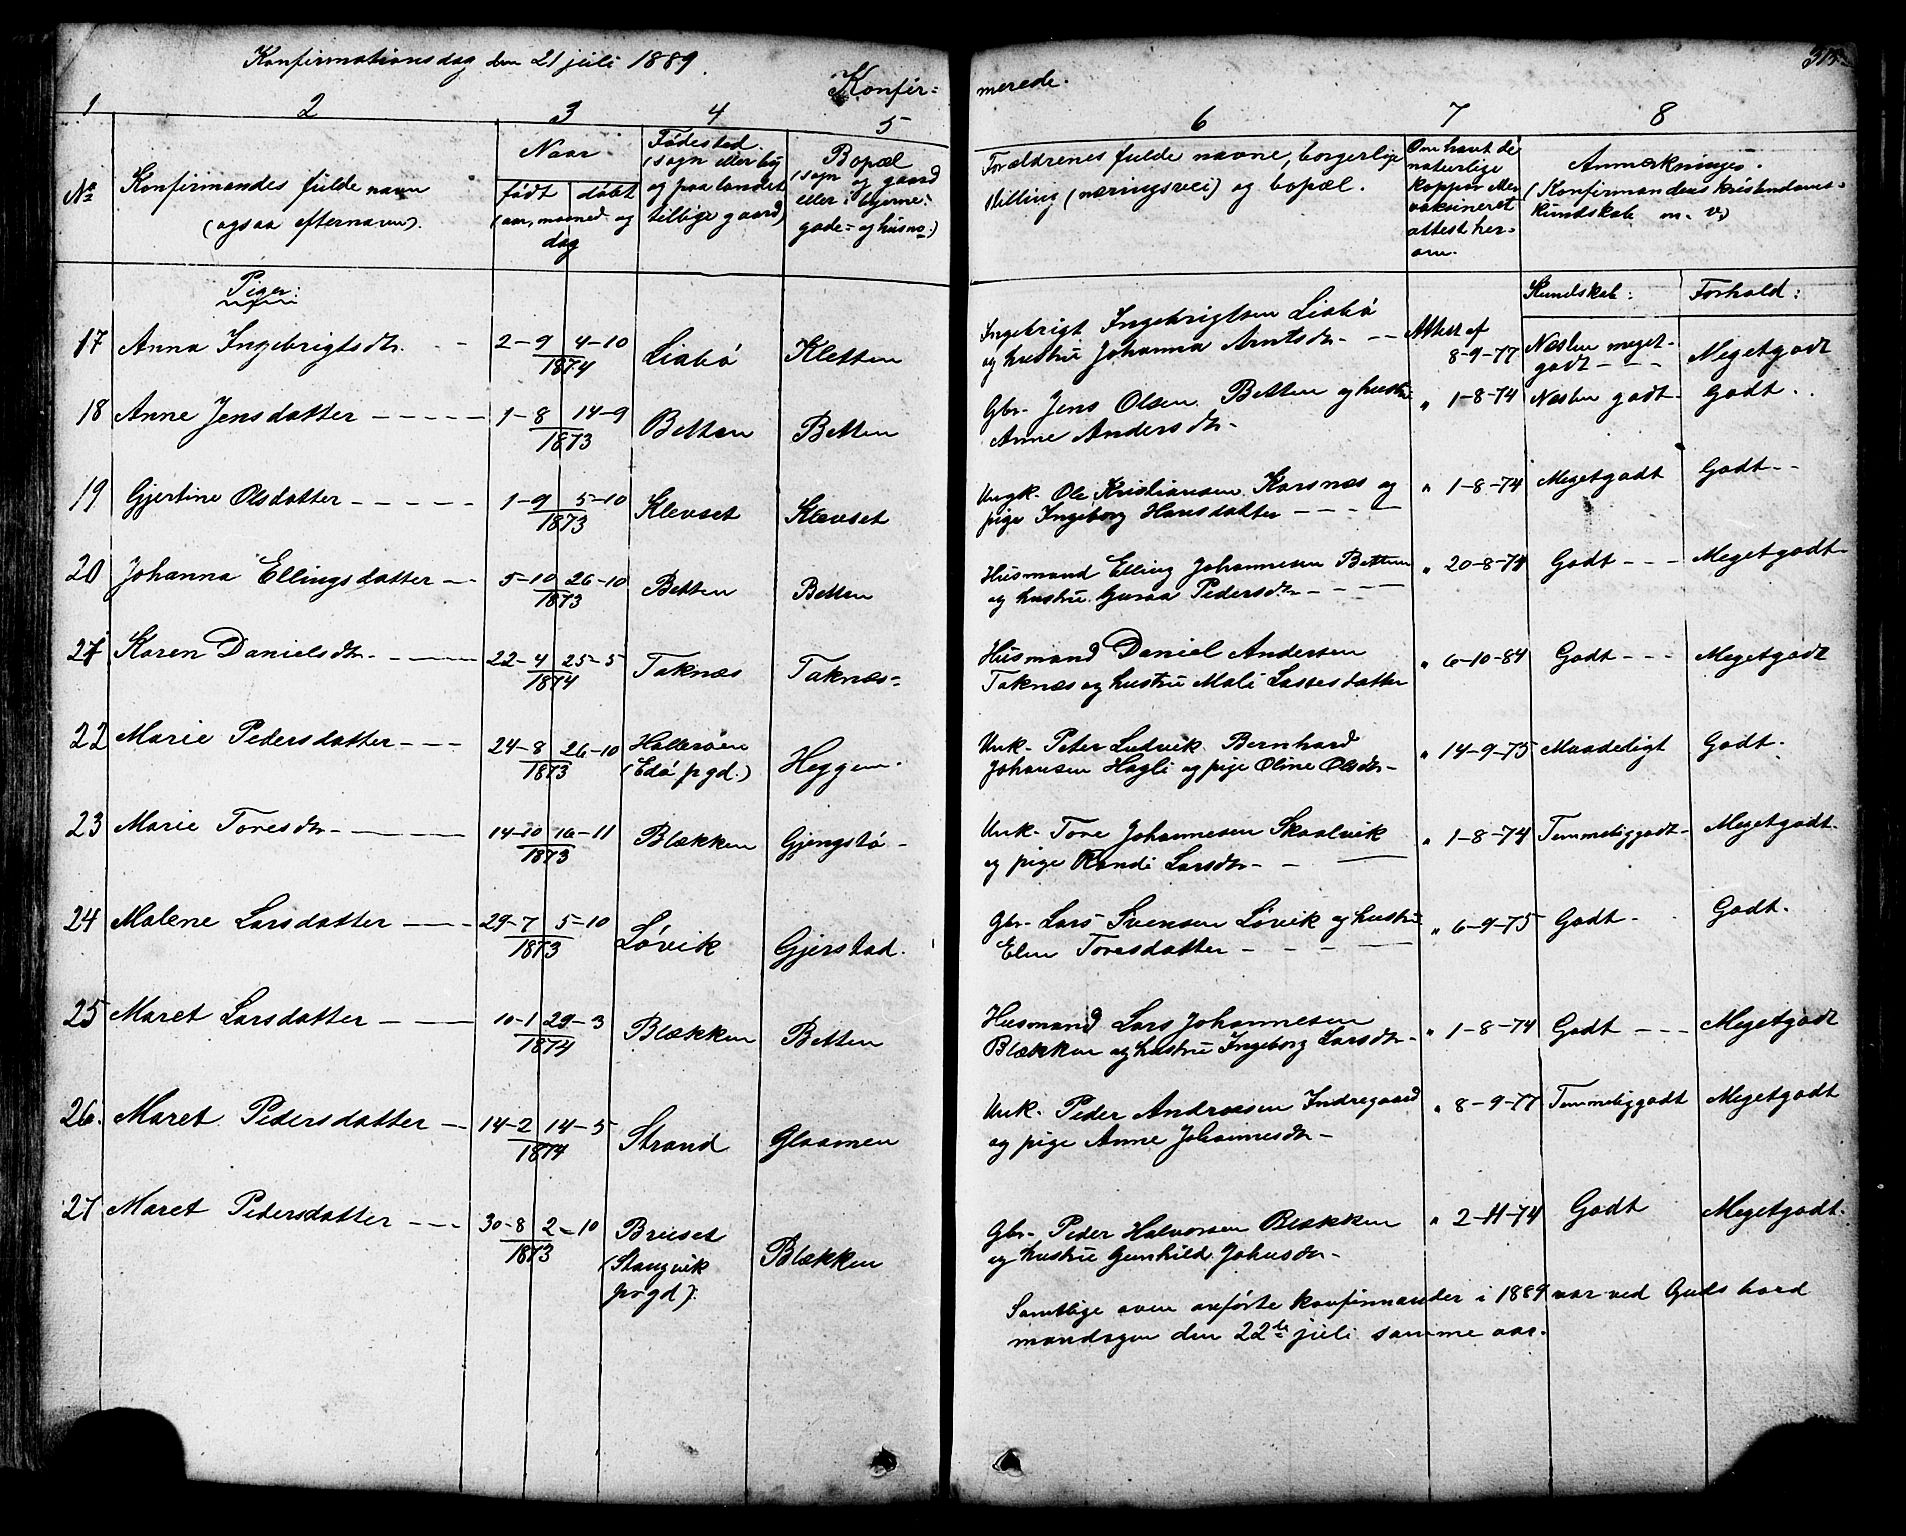 Konfirmationsdag den 21 juli 1889.
Konfir=
merede.
1 2 3 4 5 6 7 8
No
Konfirmandes fulde navn
(ogsaa efternavn).
Naar
født
døbt
(aar, maaned og
dag
Fødested.
(sogn eller by
og paa landet
tillige gaard)
Bopæl
(sogn og gaard
eller i byerne:
gade= og husno.)
Forældrenes fulde navne, borgerlige
stilling (næringsvei) og bopæl.
Om havt de
naturlige
kopper eller
vaksineret
attest her=
om.
Anmerkninger.
(Konfirmandens kristendoms=
kundskab m. v.)
Piger:
Kundskab:
Forhold:
17 Anna Ingebrigtsdtr. - - 2-9 4-10 1874 Liabø Kletten
Ingebrigt Ingebrigtsen Liabø
og hustru Johanna Arntsdtr - --
Attest af
8-9-77
Næsten meget
godt - - -
Megetgodt
18 Anne Jensdatter - - - - - 1-8 14-9 1873 Betten Betten
Gbr. Jens Olsen Betten og hustru
Anne Andersdtr-
" 1-8-74 Næsten godt- Godt.
19 Gjertine Olsdatter - - - - - 1-9 5-10 1873 Klevset Klevset
Ungk. Ole Kristiansen Karsnæs og
pige Ingeborg Hansdatter - - - -
" 1-8-74 Megetgodt Godt--
20 Johanna Ellingsdatter -- 5-10 26-10 1873 Betten Betten
Husmand Elling Johannesen Betten
og hustru Guraa Pedersdtr - - - -
" 20-8-74 Godt - - - Megetgodt-
21 Karen Danielsdtr. - - - 22-4 25-5 1874 Taknæs Taknæs-
Husmand Daniel Andersen
Taknæs og hustru Mali Lassesdatter
" 6-10-84 Godt - - - Megetgodt
22 Marie Pedersdatter - - - 24-8 26-10 1873 Hallarøen
(Edø pgd.) Heggem.
Unk. Peter Ludvik Bernhard
Johansen Hagli og pige Oline Olsdtr-
" 14-9-75 Maadeligt Godt.
23 Marie Toresdtr- - - - 14-10 16-11 1873 Blækken Gjengstø -
Unk. Tore Johannesen Skaalvik
og pige Randi Larsdtr- - -
" 1-8-74 Temmeliggodt- Megetgodt.
24 Malene Larsdatter - - - 29-7 5-10 1873 Løvik Gjerstad.
Gbr. Lars Svensen Løvik og hustru
Elen Toresdatter - - - - -
" 6-9-75 Godt- Godt.
25 Maret Larsdatter - - - 10-1 29-3 1874 Blækken Betten
Husmand Lars Johannesen
Blækken og hustru Ingeborg Larsdtr-
" 1-8-74 Godt - - - Megetgodt
26. Maret Pedersdatter - 14-2 14-5 1874 Strand Glaamen
Unk. Peder Andreasen Indregaard
og pige Anne Johannesdtr-
" 8-9-77 Temmeliggodt Megetgodt
27 Maret Pedersdatter - - - 30-8 2-10 1873 Bruset
(Stangvik
prgd). Blækken
Gbr. Peder Halvorsen Blækken
og hustru Gunhild Johnsdtr-
" 2-11-74 Godt Megetgodt.
Samtlige oven anførte konfirmander i 1889 var ved Guds bord
mandagen den 22de juli samme aar.